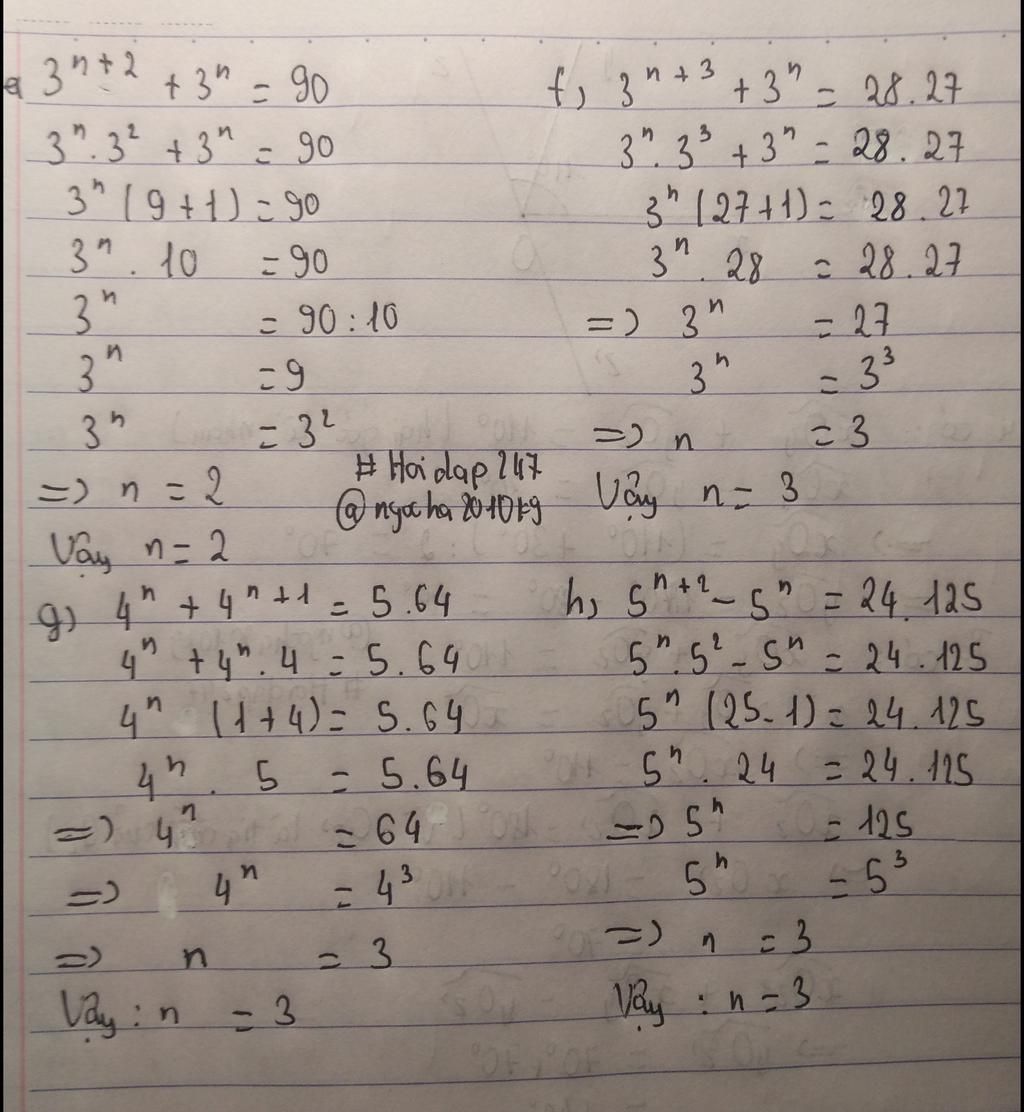 e) 3ⁿ⁺² + 3ⁿ = 90
3ⁿ . 3² + 3ⁿ = 90
3ⁿ (9 + 1) = 90
3ⁿ . 10 = 90
3ⁿ = 90 : 10
3ⁿ = 9
3ⁿ = 3²
=> n = 2
Vậy n = 2
f, 3ⁿ⁺³ + 3ⁿ = 28 . 27
3ⁿ . 3³ + 3ⁿ = 28 . 27
3ⁿ (27 + 1) = 28 . 27
3ⁿ . 28 = 28 . 27
=> 3ⁿ = 27
3ⁿ = 3³
=> n = 3
Vậy n = 3
# Hoidap247
@ngocha2010kg
g) 4ⁿ + 4ⁿ⁺¹ = 5 . 64
4ⁿ + 4ⁿ . 4 = 5 . 64
4ⁿ (1 + 4) = 5 . 64
4ⁿ . 5 = 5 . 64
=> 4ⁿ = 64
=> 4ⁿ = 4³
=> n = 3
Vậy : n = 3
h, 5ⁿ⁺² - 5ⁿ = 24 . 125
5ⁿ . 5² - 5ⁿ = 24 . 125
5ⁿ (25 - 1) = 24 . 125
5ⁿ . 24 = 24 . 125
=> 5ⁿ = 125
5ⁿ = 5³
=> n = 3
Vậy : n = 3